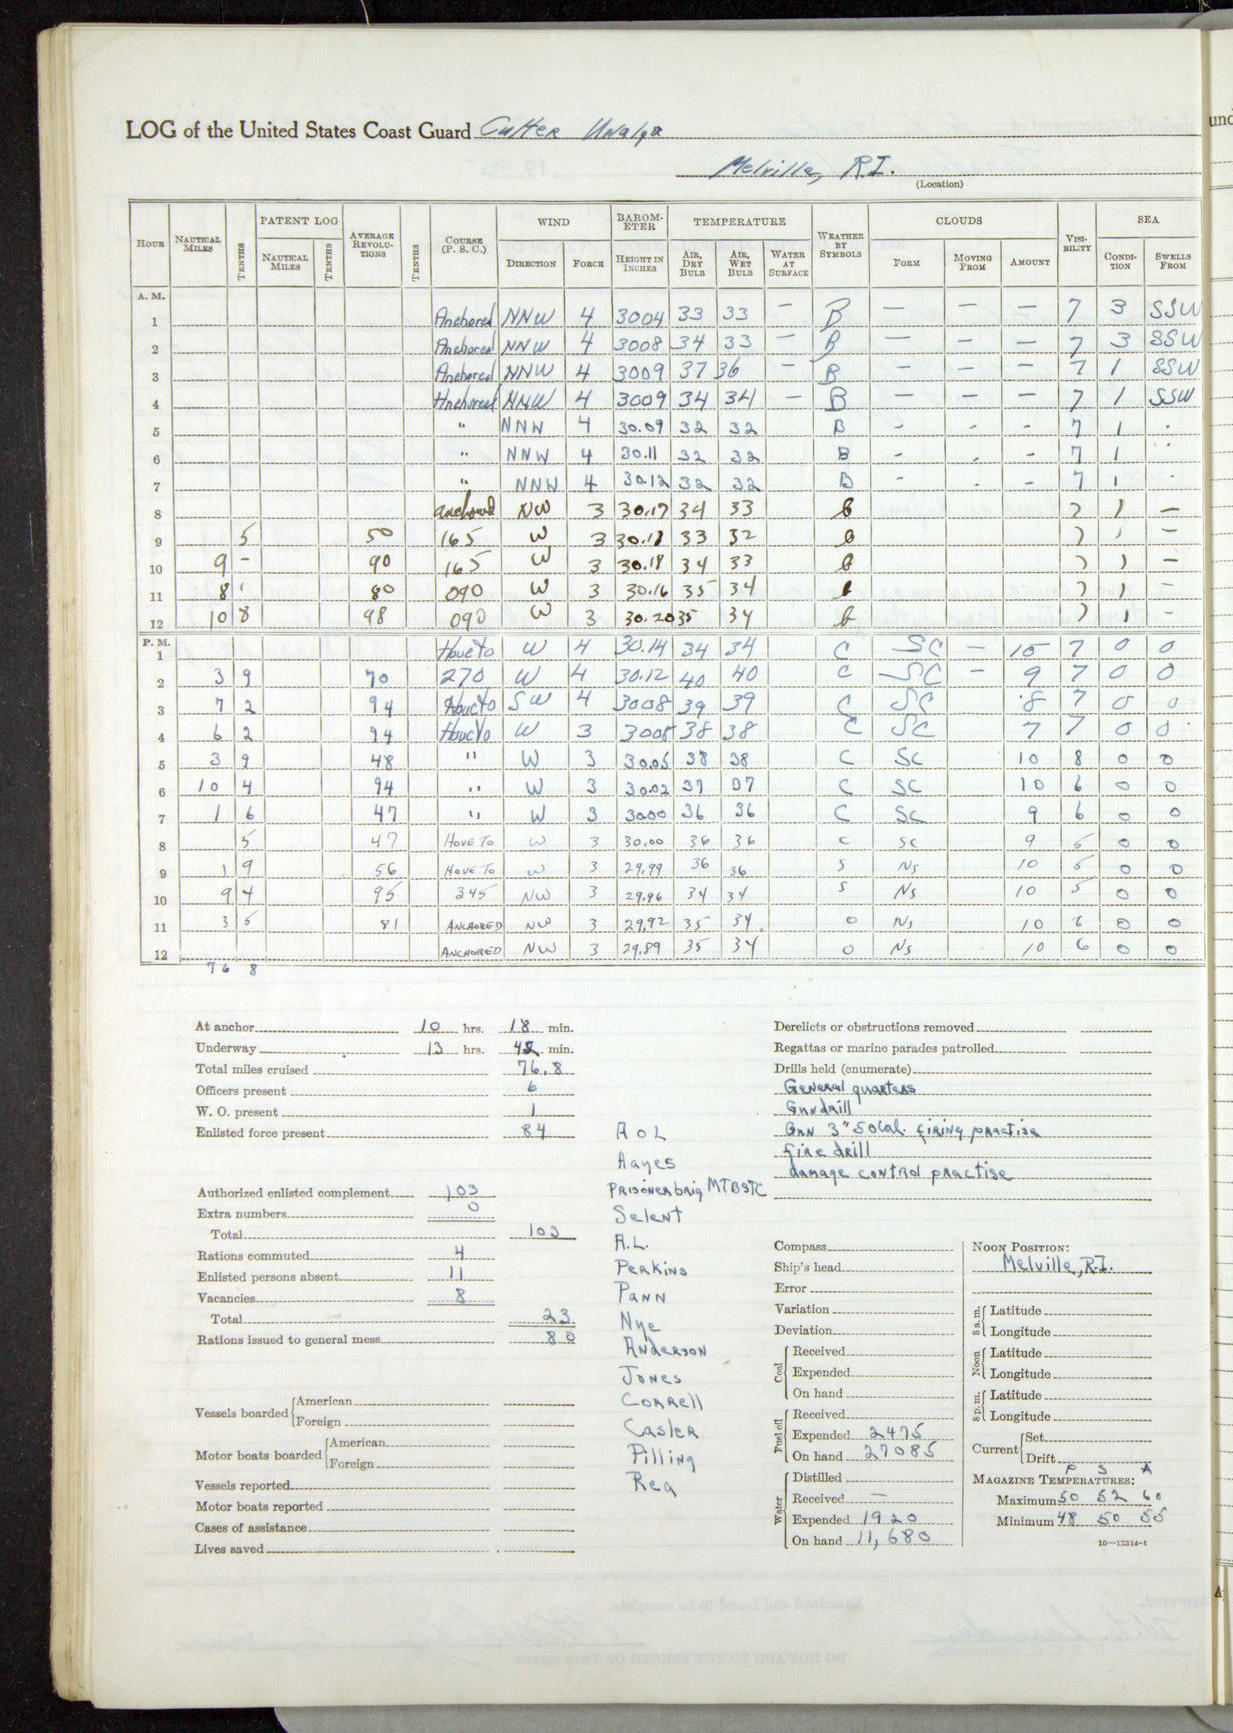 LOG of the United States Coast Guard Cutter Unalga
Melville, R.I.
(Location)
HOUR NAUTICAL MILES TENTHS PATENT LOG NAUTICAL MILES TENTHS AVERAGE REVOLUTIONS TENTHS COURSE (P. S. C.) WIND DIRECTION FORCE BAROMETER HEIGHT IN INCHES TEMPERATURE AIR, DRY BULB AIR, WET BULB WATER AT SURFACE WEATHER BY SYMBOLS CLOUDS FORM MOVING FROM AMOUNT VISIBILITY SEA CONDITION SWELLS FROM
A. M.
1 Anchored NNW 4 3004 33 33 — B — — — 7 3 SSW
2 Anchored NNW 4 3008 34 33 — B — — — 7 3 SSW
3 Anchored NNW 4 3009 37 36 — B — — — 7 1 SSW
4 Anchored NNW 4 3009 34 34 — B — — — 7 1 SSW
5 " NNW 4 30.09 32 32 B - - - 7 1 -
6 " NNW 4 30.11 32 32 B - - - 7 1 -
7 " NNW 4 30.12 32 32 B - - - 7 1 -
8 anchored NW 3 30.17 34 33 b 7 1 —
9 5 50 165 W 3 30.18 33 32 b 7 1 —
10 9 - 90 165 W 3 30.18 34 33 b 7 1 —
11 8 1 80 090 W 3 30.16 35 34 b 7 1 —
12 10 8 98 090 W 3 30.20 35 34 b 7 1 —
P. M.
1 Hove to W 4 30.14 34 34 C SC — 10 7 0 0
2 3 9 70 270 W 4 30.12 40 40 C SC — 9 7 0 0
3 7 2 94 Hove to SW 4 3008 39 39 C SC 8 7 0 0
4 6 2 94 Hove to W 3 3005 38 38 C SC 7 7 0 0
5 3 9 48 " W 3 30.05 38 38 C SC 10 8 0 0
6 10 4 94 " W 3 30.02 37 37 C SC 10 6 0 0
7 1 6 47 " W 3 30.00 36 36 C SC 9 6 0 0
8 5 47 HOVE TO W 3 30.00 36 36 C SC 9 5 0 0
9 1 9 56 HOVE TO W 3 29.99 36 36 S NS 10 5 0 0
10 9 4 95 345 NW 3 29.96 34 34 S NS 10 5 0 0
11 3 5 81 ANCHORED NW 3 29.92 35 34 O NS 10 6 0 0
12 ANCHORED NW 3 29.89 35 34 O NS 10 6 0 0
76 8
At anchor 10 hrs. 18 min.
Underway 13 hrs. 42 min.
Total miles cruised 76.8
Officers present 6
W. O. present 1
Enlisted force present 84
Authorized enlisted complement 103
Extra numbers 0
Total 103
Rations commuted 4
Enlisted persons absent 11
Vacancies 8
Total 23
Rations issued to general mess 80
Vessels boarded American
Foreign
Motor boats boarded American
Foreign
Vessels reported
Motor boats reported
Cases of assistance
Lives saved
AOL
Hayes
Prisoner brig MTBSTC
Selent
A.L.
Perkins
Pann
Nye
Anderson
Jones
Correll
Casler
Pilling
Rea
Derelicts or obstructions removed
Regattas or marine parades patrolled
Drills held (enumerate)
General quarters
Gundrill
Gun 3" 50 cal. firing practise
fire drill
damage control practise
Compass
Ship's head
Error
Variation
Deviation
Coal Received
Expended
On hand
Fuel oil Received
Expended 2475
On hand 27085
Water Distilled
Received —
Expended 1920
On hand 11,680
NOON POSITION:
Melville, R.I.
8 a. m. Latitude
Longitude
Noon Latitude
Longitude
8 p. m. Latitude
Longitude
Current Set
Drift
P S A
MAGAZINE TEMPERATURES:
Maximum 50 52 60
Minimum 48 50 55
16—13314-1